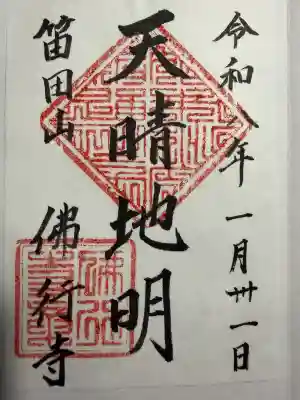 令和八年一月卅一日
天晴地明
笛田山
佛行寺